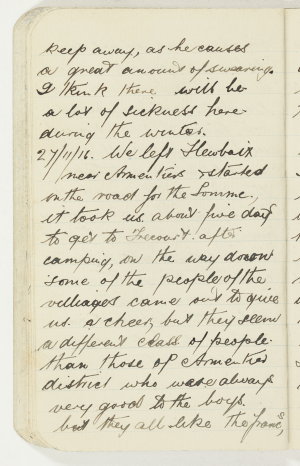 keep away, as he causes
a great amount of swearing.
I think there will be
a lot of sickness here
during the winter.
27/11/16. We left Flewbaix
near Armentiers & started
on the road for the Somme,
it took us about five days
to get to Frecourt. after
camping, on the way down
some of the people of the
villiages came out to give
us a cheer, but they seem
a different class of people
than those of Armentier
district who were always
very good to the boys.
but they all like the francs,